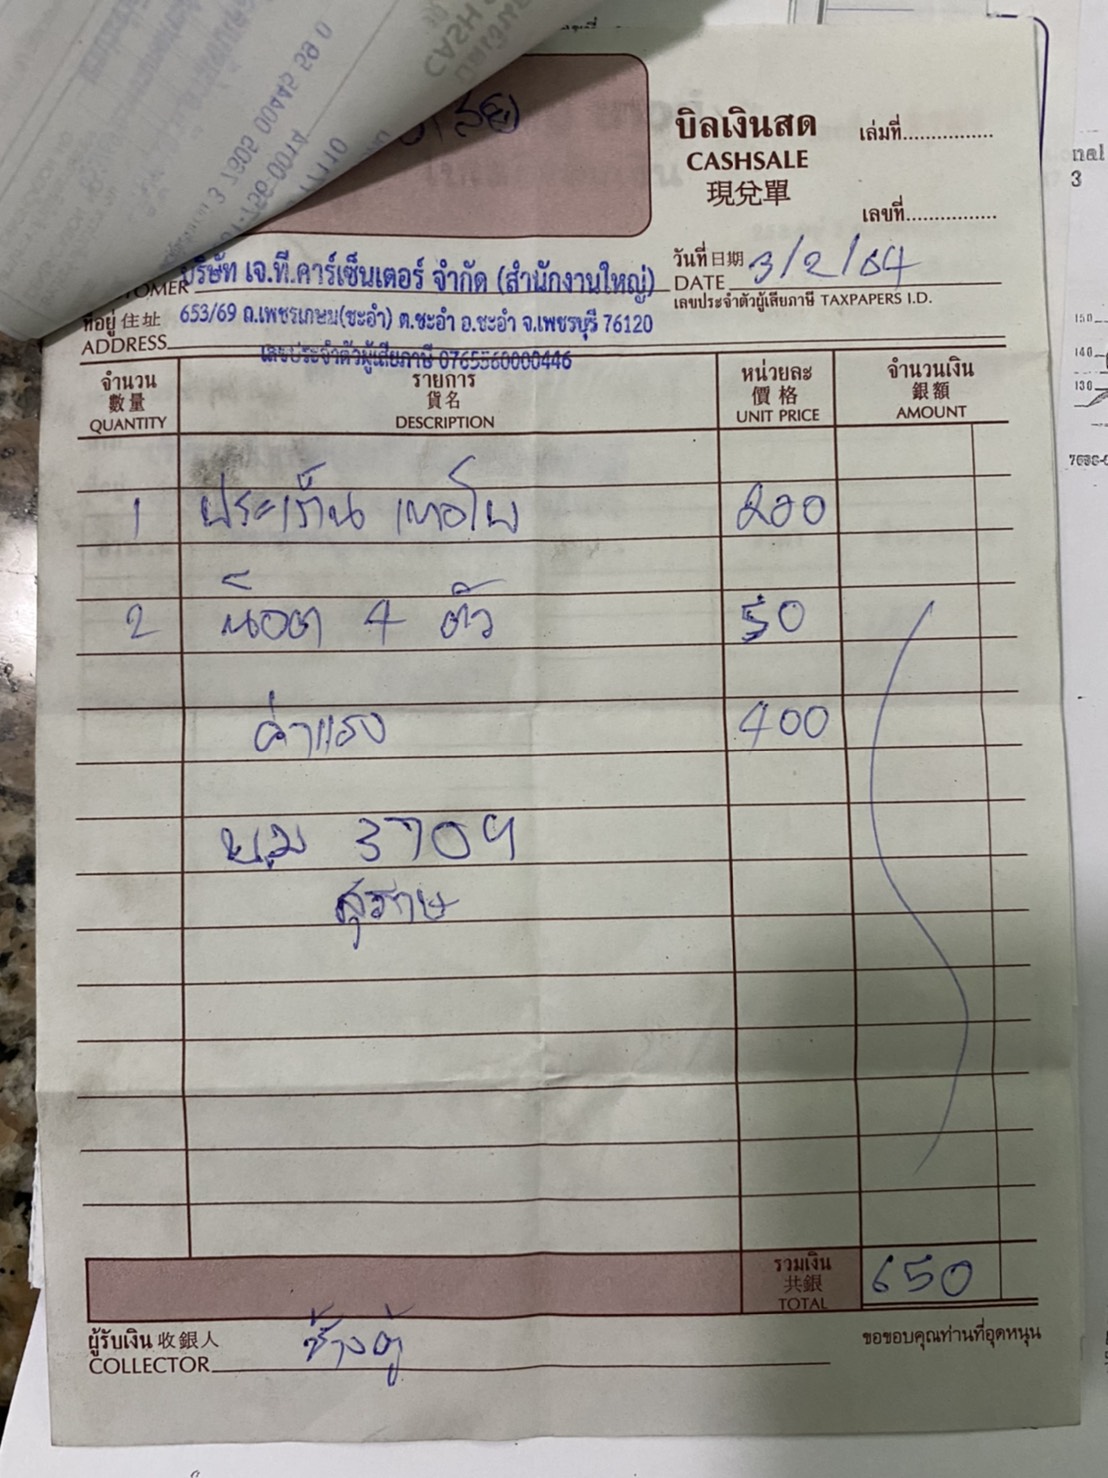 บิลเงินสด
CASHSALE
現兌單
เล่มที่
เลขที่
วันที่ 日期 3/2/64
DATE
เลขประจำตัวผู้เสียภาษี TAXPAPERS I.D.
บริษัท เจ.ที.คาร์เซ็นเตอร์ จำกัด (สำนักงานใหญ่)
ที่อยู่ 住址 653/69 ถ.เพชรเกษม(ชะอำ) ต.ชะอำ อ.ชะอำ จ.เพชรบุรี 76120
ADDRESS
เลขประจำตัวผู้เสียภาษี 0765560000446
จำนวน รายการ หน่วยละ จำนวนเงิน
數量 貨名 價格 銀額
QUANTITY DESCRIPTION UNIT PRICE AMOUNT
1 ประเก็น เทอโบ 200
2 น็อต 4 ตัว 50
ค่าแรง 400
3709
รวมเงิน 650
共銀
TOTAL
ผู้รับเงิน 收銀人
COLLECTOR
ขอขอบคุณท่านที่อุดหนุน